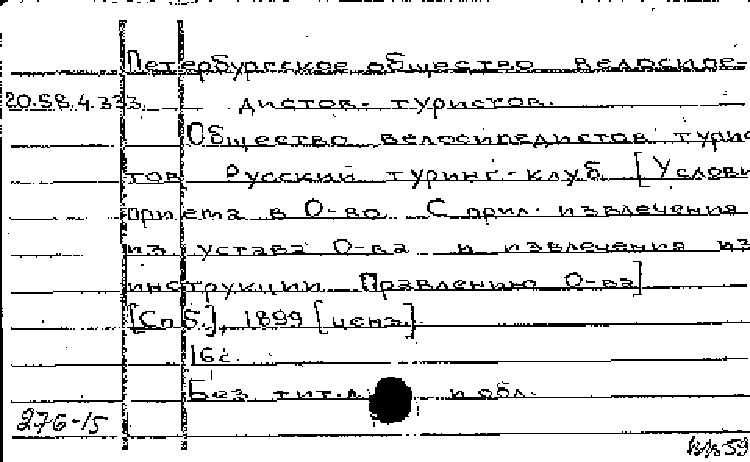 Петербургское общество велосипе-
20.58.4.333 дистов-туристов.
Общество велосипедистов турис
тов Русский туринг-клуб [Услови
приема в О-во С прил. извлечения
из устава О-ва и извлечения из
инструкции Правлению О-ва]
[Спб.], 1899 [ценз.]
16с.
Без тит.л. и обл.
276-15
59